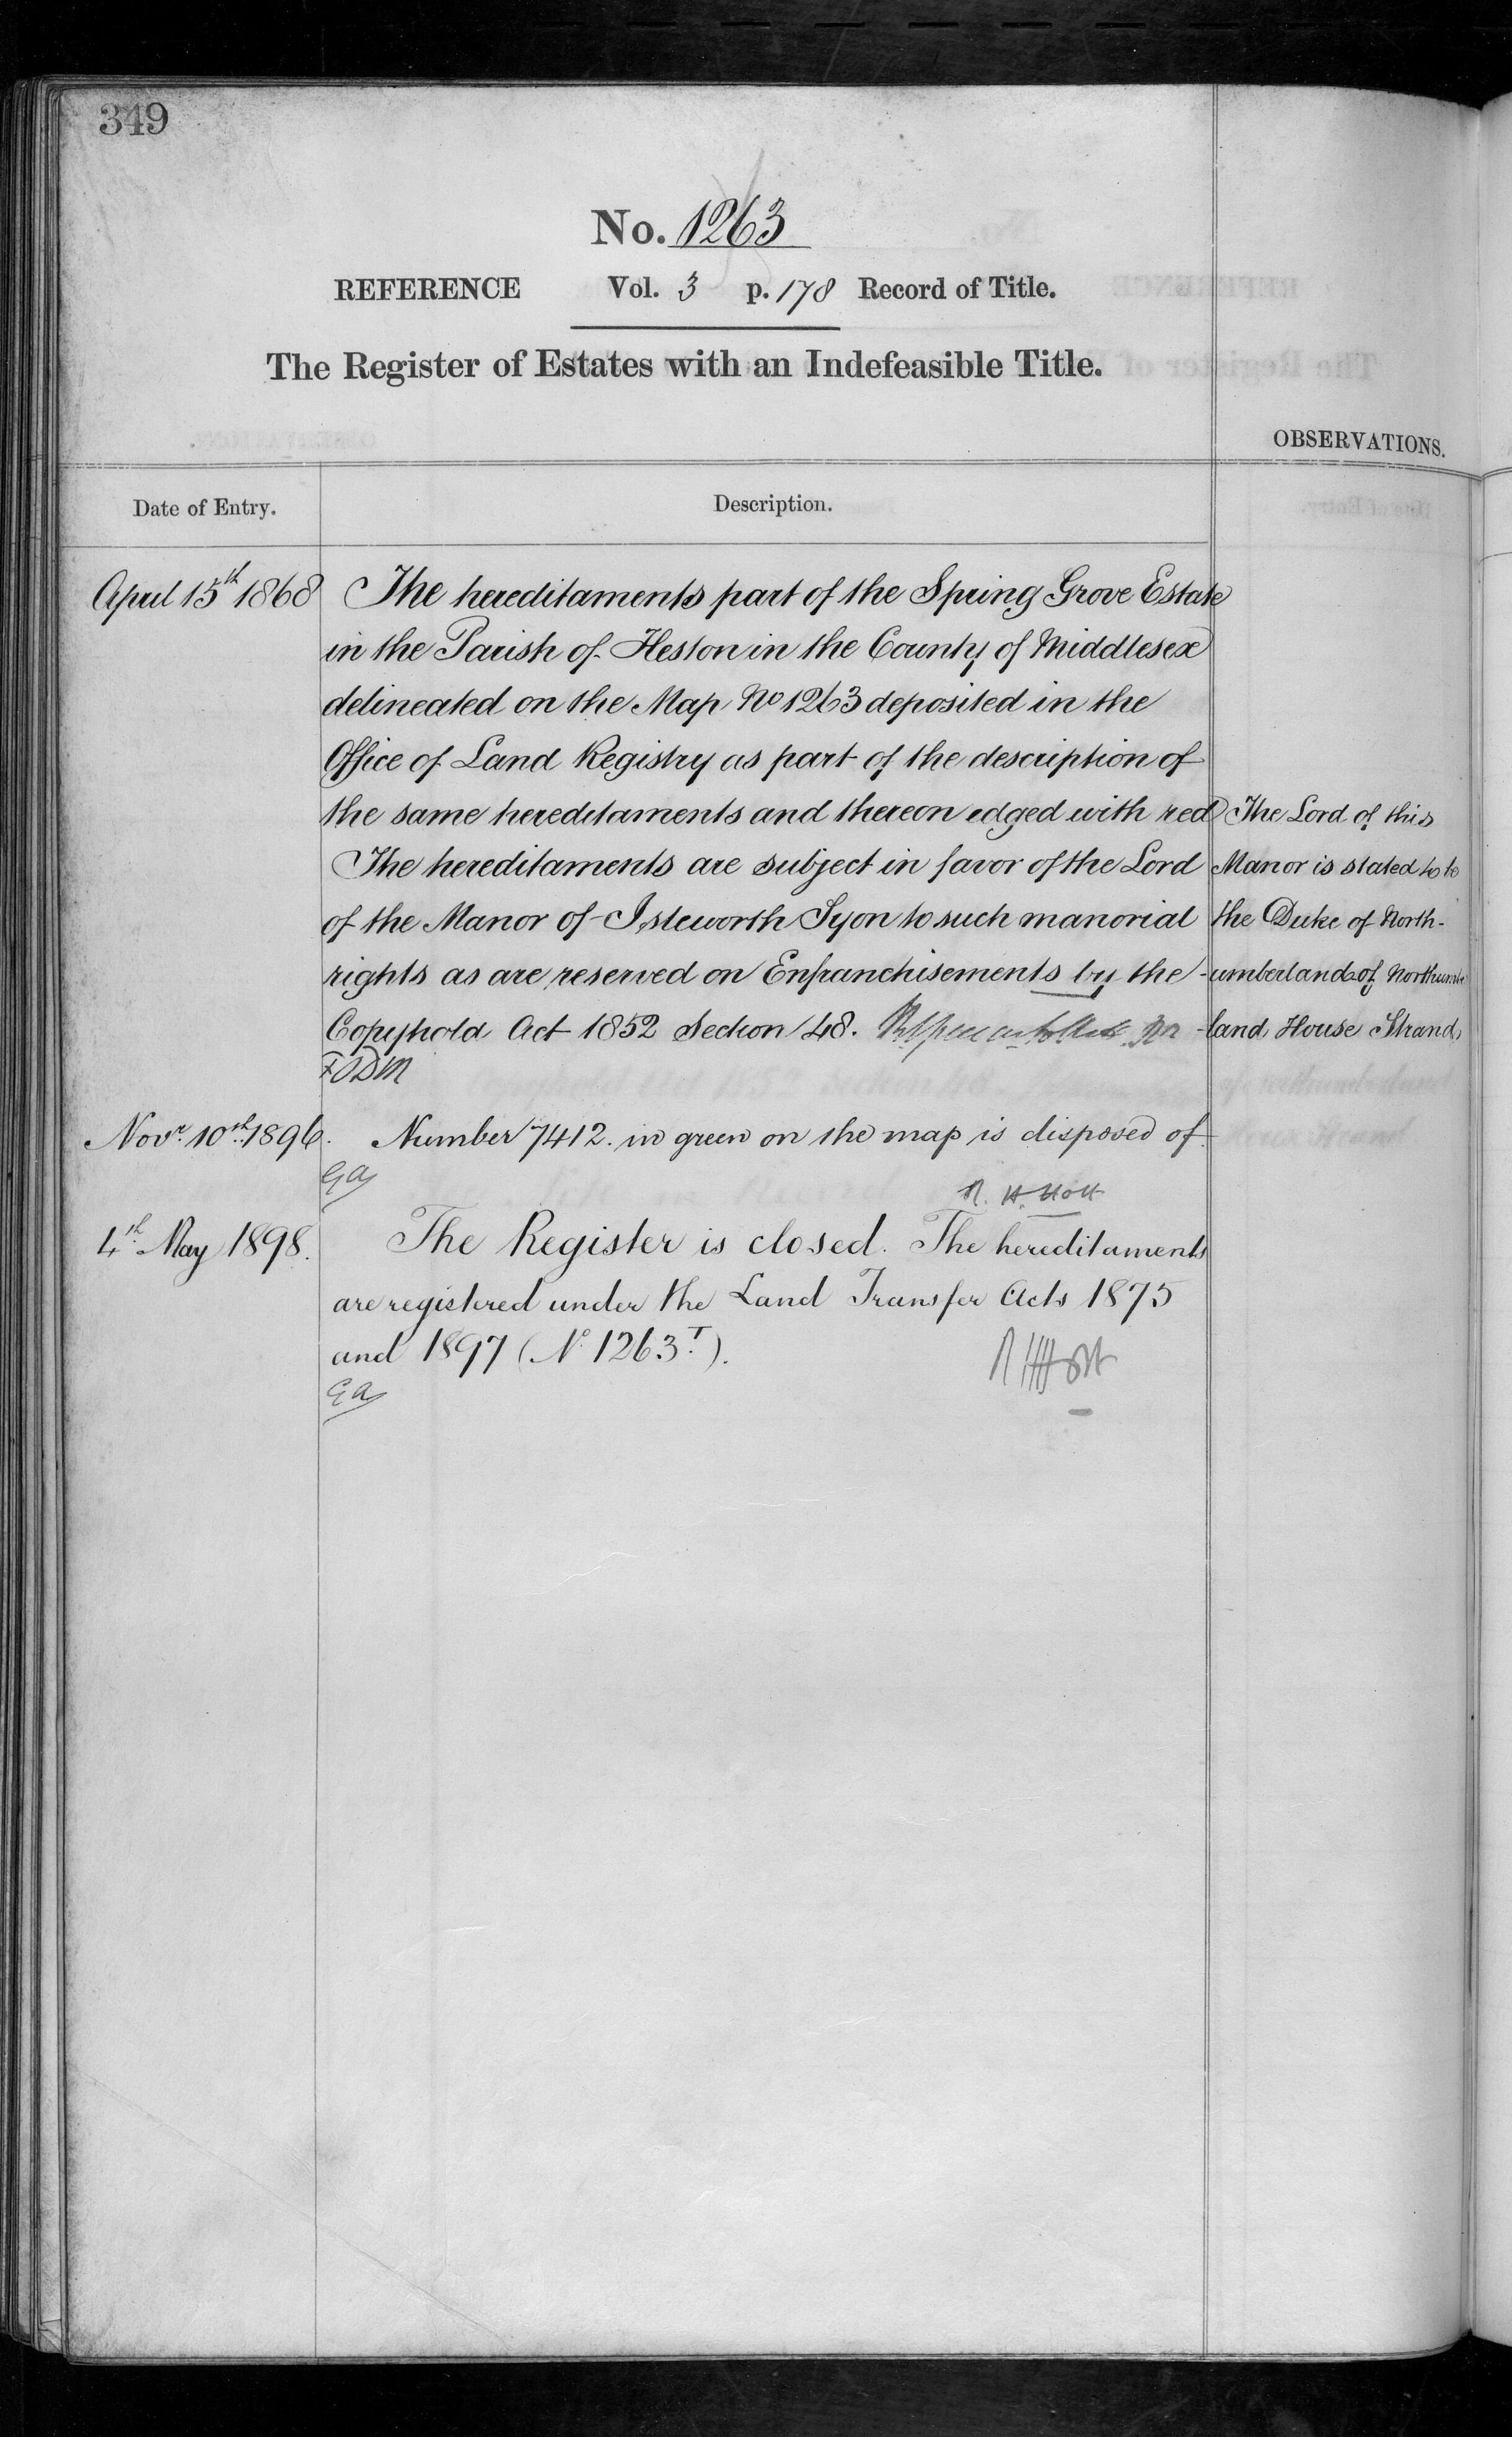 349
No. 1263
REFERENCE Vol. 3 p. 178 Record of Title.
The Register of Estates with an Indefeasible Title.
OBSERVATIONS.
Date of Entry.
Description.
April 15th 1868
The hereditaments part of the Spring Grove Estate
in the Parish of Heston in the County of Middlesex
delineated on the Map No 1263 deposited in the
Office of Land Registry as part of the description of
the same hereditaments and thereon edged with red
The hereditaments are subject in favor of the Lord
of the Manor of Isleworth Syon to such manorial
rights as are reserved on Enfranchisements by the
Copyhold Act 1852 Section 48.
The Lord of this
Manor is stated to to
the Duke of North-
-umberland of Northumber
-land House Strand
Novr. 10th. 1896.
Number 7412. in green on the map is disposed of.
GA
R. H. Holt
4th. May 1898.
The Register is closed. The hereditaments
are registered under the Land Transfer Acts 1875
and 1897 (No. 1263.T).
R H Holt
GA